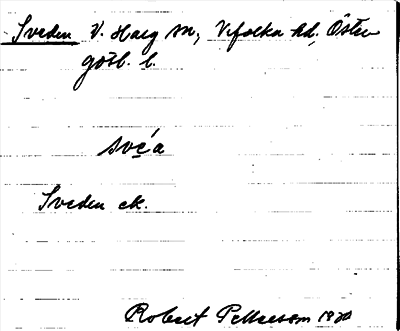 Sveden V. Harg sn, Vifolka hd, Öster
götl. l.
sve̱´a
Sveden ek.
Robert Pettersson 1920